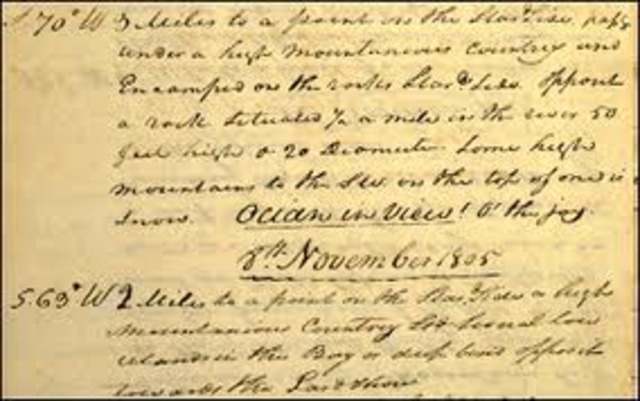 S. 70° W 3 Miles to a point on the Star'd Side, pass'g
under a high Mountaneous Country and
Encamped on the rocks Star'd Side opposit
a rock Situated ½ a mile in the river 50
feet high & 20 Diamute Some high
mountains to the S W on the top of one is
Snow. Ocian in View! O' the joy.
8th November 1805
S 63° W 2 Miles to a point on the Star'd Side a high
Mountanious Country Lo'd Several low
Islands in this Bay or deep bend opposit
towards the Lar'd Shore